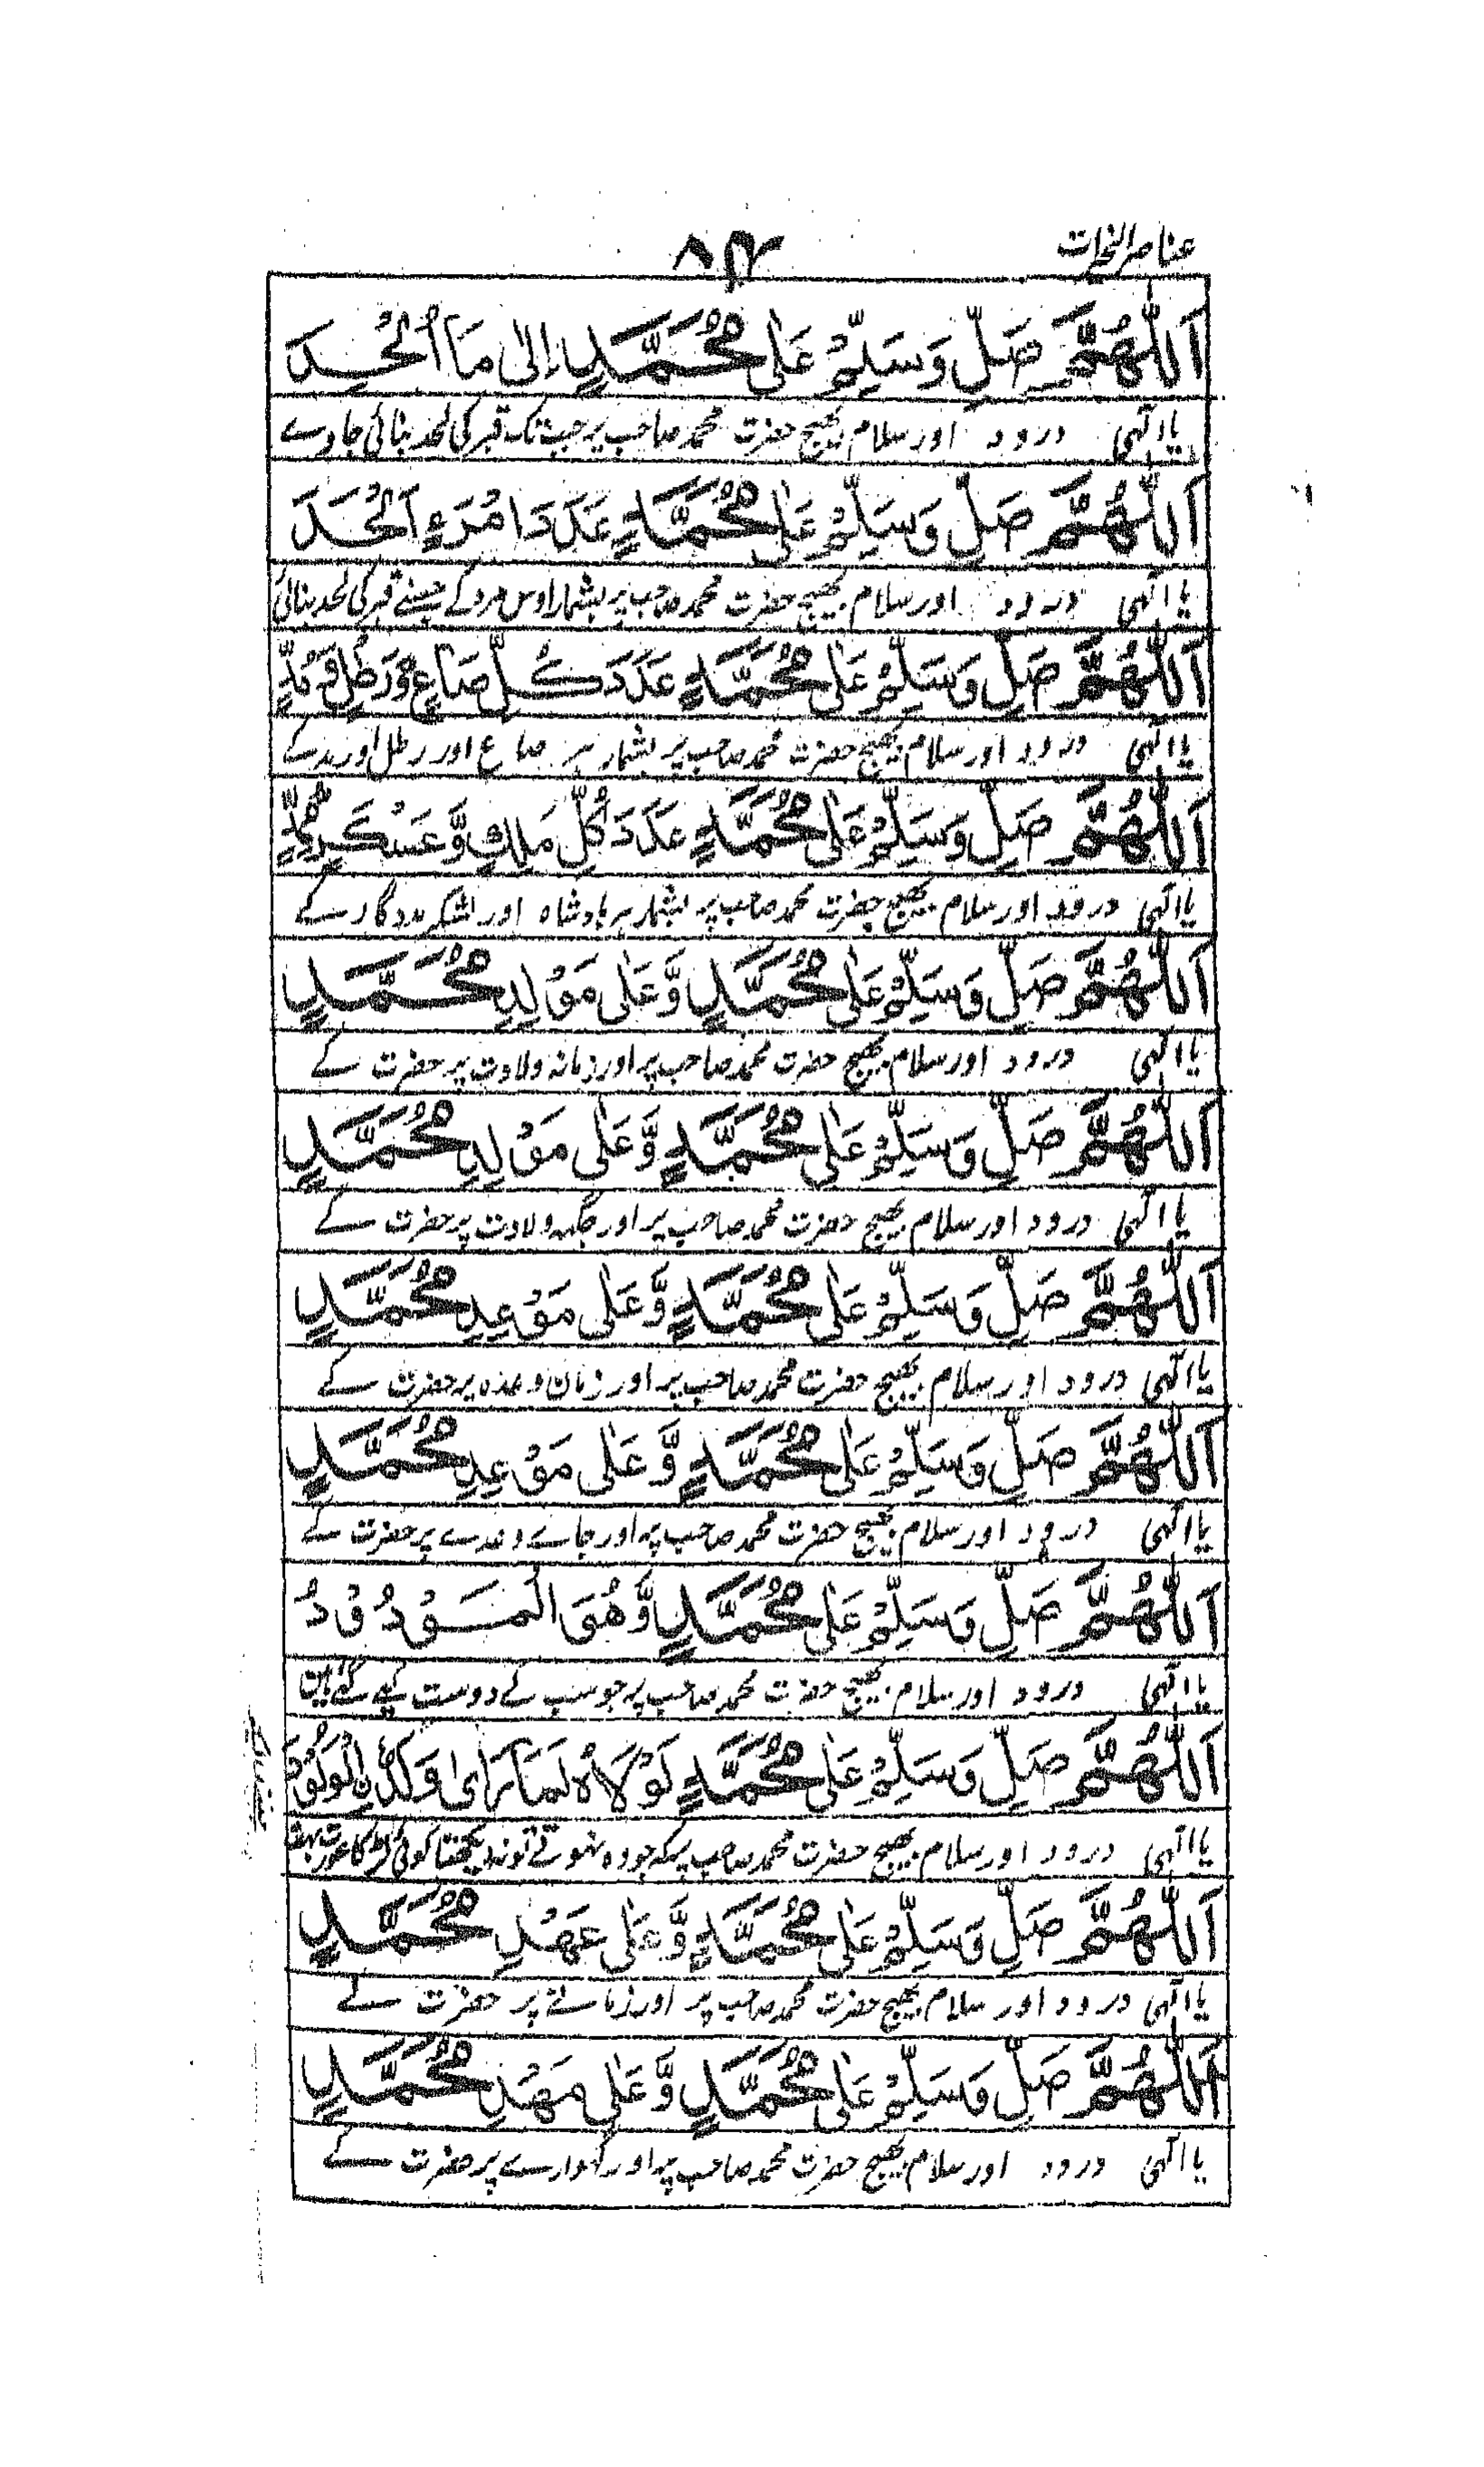 عناصر النجات
۸۴
اَللّٰهُمَّ صَلِّ وَسَلِّمْ عَلٰى مُحَمَّدٍ اِلٰى مَا اُلْحِدَ
یا الٰہی درود اور سلام بھیج حضرت محمد صاحب پر جب تک قبر کی لحد بنائی جاوے
اَللّٰهُمَّ صَلِّ وَسَلِّمْ عَلٰى مُحَمَّدٍ عَدَدَ امْرَءٍ اَلْحَدَ
یا الٰہی درود اور سلام بھیج حضرت محمد صاحب پر بشمار اوس مرد کے جسنے قبر کی لحد بنائی
اَللّٰهُمَّ صَلِّ وَسَلِّمْ عَلٰى مُحَمَّدٍ عَدَدَ كُلِّ صَاعٍ وَّرَطْلٍ وَّمُدٍّ
یا الٰہی درود اور سلام بھیج حضرت محمد صاحب پر بشمار ہر صاع اور رطل اور مد کے
اَللّٰهُمَّ صَلِّ وَسَلِّمْ عَلٰى مُحَمَّدٍ عَدَدَ كُلِّ مَلِكٍ وَّعَسْكَرٍ مُّمِدٍّ
یا الٰہی درود اور سلام بھیج حضرت محمد صاحب پر بشمار ہر بادشاہ اور لشکر مددگار کے
اَللّٰهُمَّ صَلِّ وَسَلِّمْ عَلٰى مُحَمَّدٍ وَّعَلٰى مَوْلِدِ مُحَمَّدٍ
یا الٰہی درود اور سلام بھیج حضرت محمد صاحب پر اور زمانہ ولادت پر حضرت کے
اَللّٰهُمَّ صَلِّ وَسَلِّمْ عَلٰى مُحَمَّدٍ وَّعَلٰى مَوْلِدِ مُحَمَّدٍ
یا الٰہی درود اور سلام بھیج حضرت محمد صاحب پر اور جگہہ ولادت پر حضرت کے
اَللّٰهُمَّ صَلِّ وَسَلِّمْ عَلٰى مُحَمَّدٍ وَّعَلٰى مَوْعِدِ مُحَمَّدٍ
یا الٰہی درود اور سلام بھیج حضرت محمد صاحب پر اور زمان وعدہ پر حضرت کے
اَللّٰهُمَّ صَلِّ وَسَلِّمْ عَلٰى مُحَمَّدٍ وَّعَلٰى مَوْعِدِ مُحَمَّدٍ
یا الٰہی درود اور سلام بھیج حضرت محمد صاحب پر اور جاے وعدے پر حضرت کے
اَللّٰهُمَّ صَلِّ وَسَلِّمْ عَلٰى مُحَمَّدٍ وَّهُوَ الْمَوْدُوْدُ
یا الٰہی درود اور سلام بھیج حضرت محمد صاحب پر جو سب کے دوست کیے گئے ہین
اَللّٰهُمَّ صَلِّ وَسَلِّمْ عَلٰى مُحَمَّدٍ لَوْلَاهُ لَمَا رَاىٰ وَلَدُنِ الْوَلُوْدَ
یا الٰہی درود اور سلام بھیج حضرت محمد صاحب پر کہ جو وہ نہوتے تو نہ دیکھتا کوئی لڑکا عورت بہت
اَللّٰهُمَّ صَلِّ وَسَلِّمْ عَلٰى مُحَمَّدٍ وَّعَلٰى عَهْدِ مُحَمَّدٍ
یا الٰہی درود اور سلام بھیج حضرت محمد صاحب پر اور زمانے پر حضرت کے
اَللّٰهُمَّ صَلِّ وَسَلِّمْ عَلٰى مُحَمَّدٍ وَّعَلٰى مَهْدِ مُحَمَّدٍ
یا الٰہی درود اور سلام بھیج حضرت محمد صاحب پر اور گہوارے پر حضرت کے